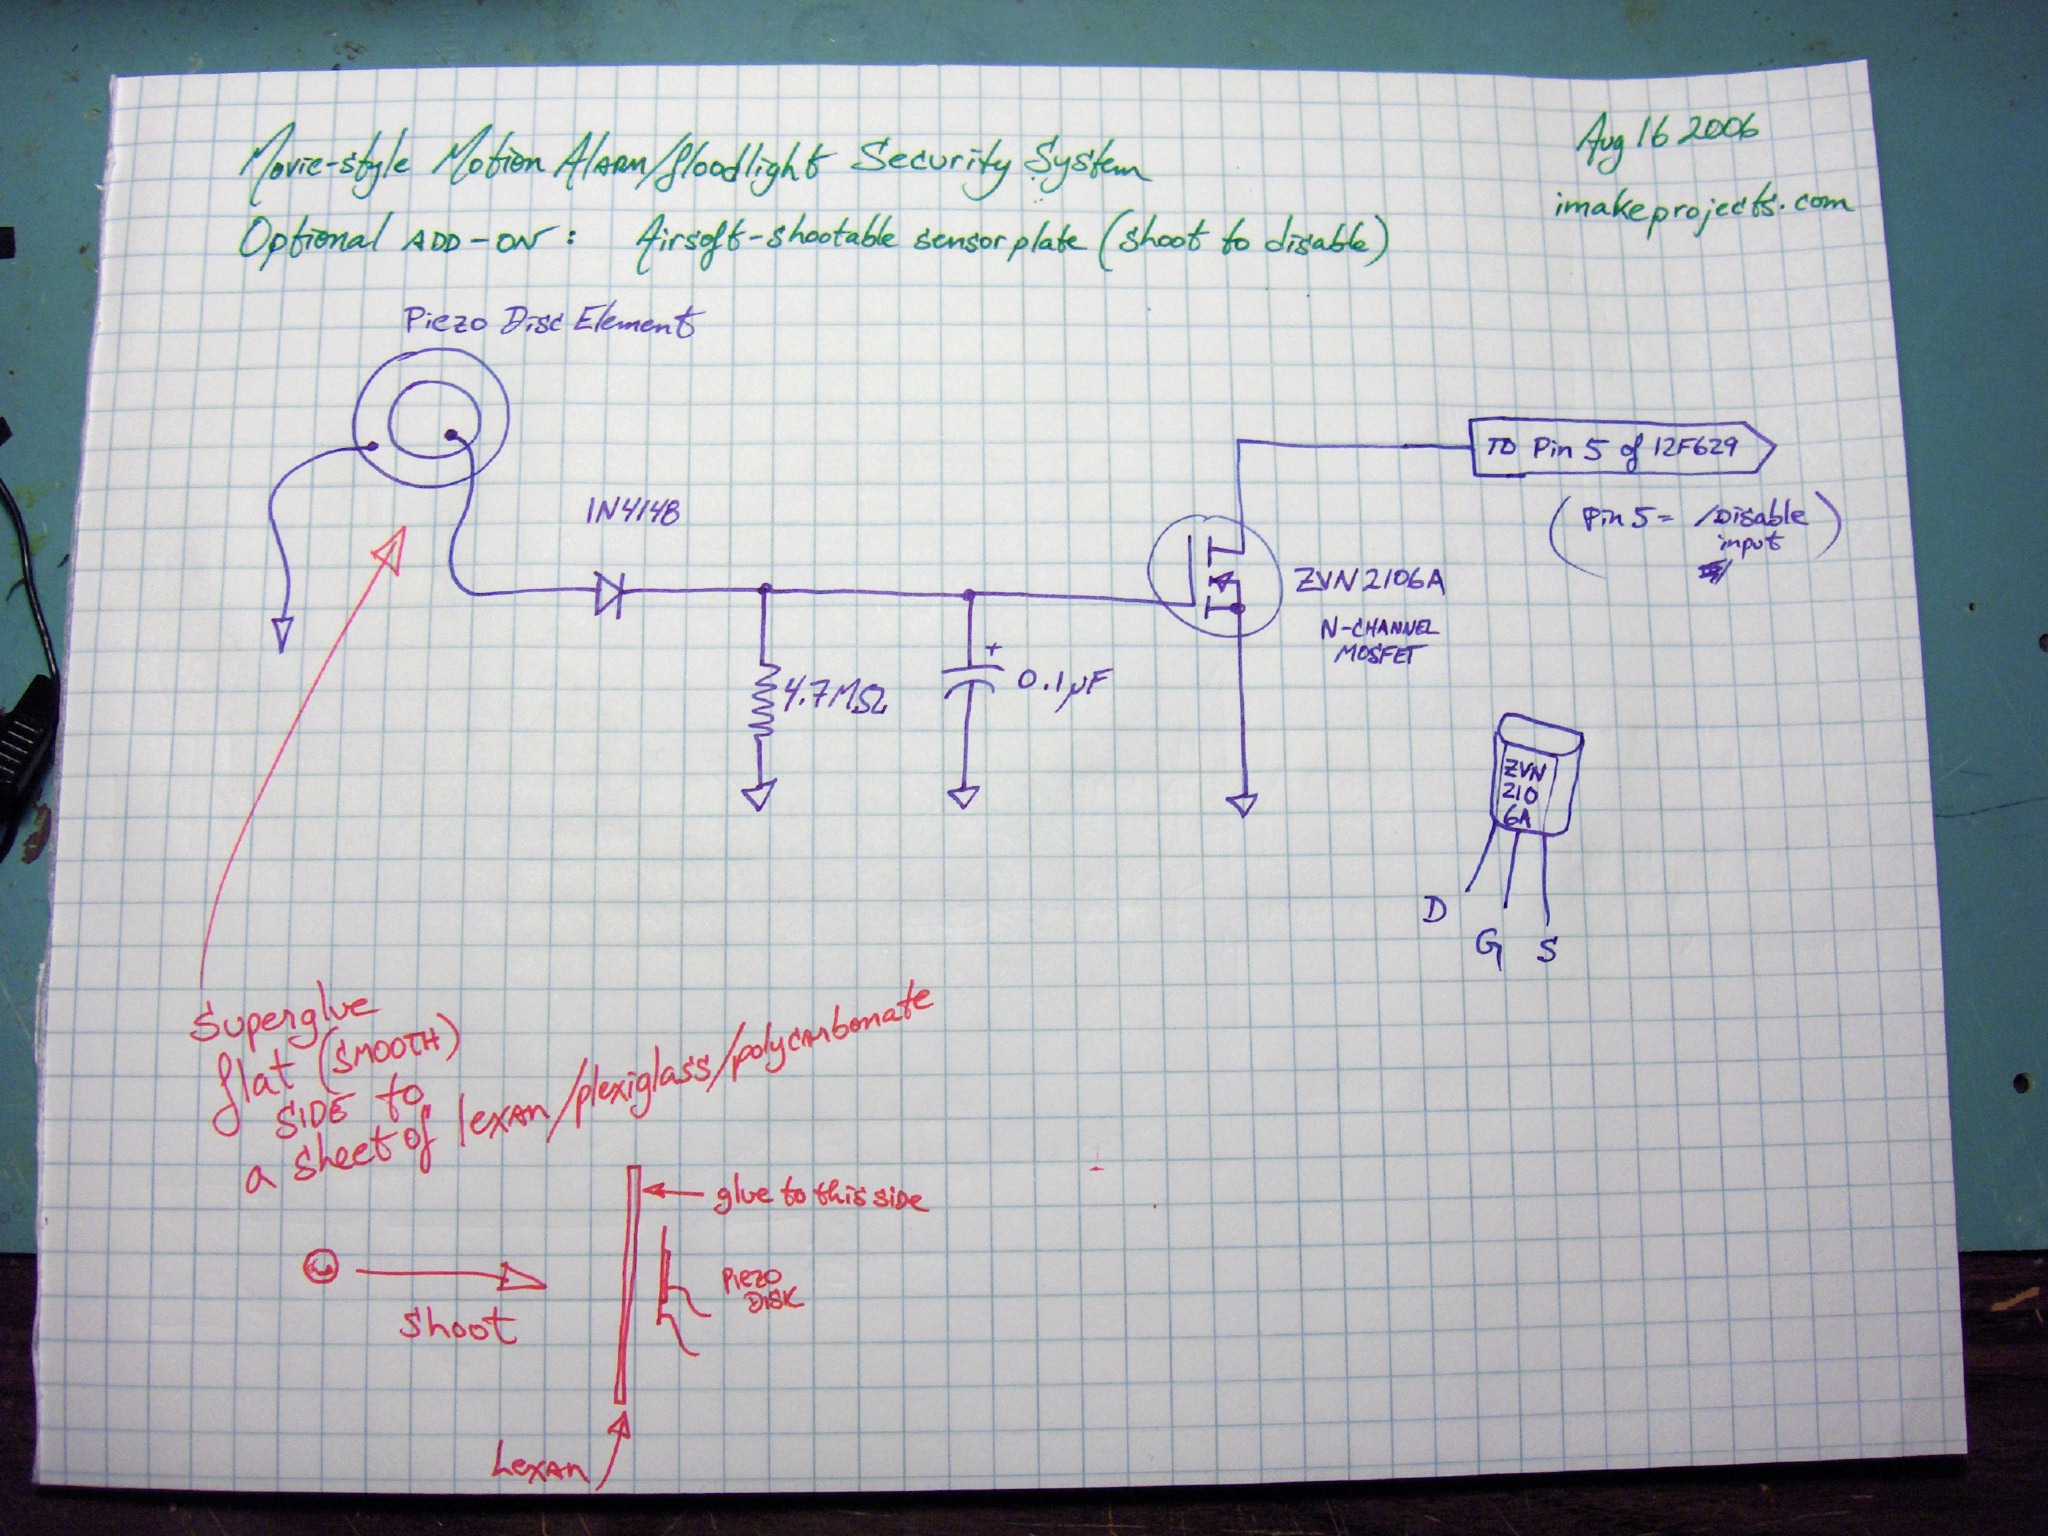 Movie-style Motion Alarm/floodlight Security System
Optional ADD-ON: Airsoft-shootable sensor plate (shoot to disable)
Aug 16 2006
imakeprojects.com
Piezo Disc Element
1N4148
TO Pin 5 of 12F629
(Pin 5 = /Disable
input)
ZVN2106A
N-CHANNEL
MOSFET
4.7MΩ
+
0.1µF
ZVN
210
6A
D
G S
Superglue
flat (SMOOTH)
SIDE to
a sheet of lexan/plexiglass/polycarbonate
glue to this side
shoot
PIEZO
DISK
Lexan